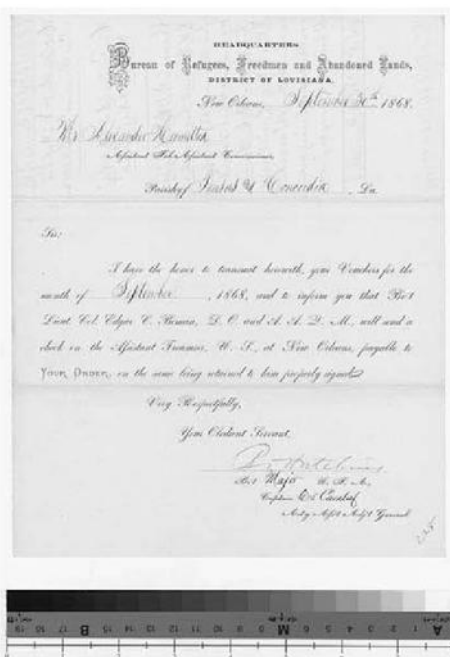 HEADQUARTERS
Bureau of Refugees, Freedmen and Abandoned Lands,
DISTRICT OF LOUISIANA.
New Orleans, September 30th 1868.
Mr Alexander Hamilton
Assistant Sub Assistant Commissioner,
Parish of Concordia, La
Sir:
I have the honor to transmit herewith, your Vouchers for the
month of September, 1868, and to inform you that Bv't
Lieut. Col. Edgar C. Beman, D. O. and A. A. Q. M., will send a
check on the Assistant Treasurer, U. S., at New Orleans, payable to
YOUR ORDER, on the same being returned to him properly signed.
Very Respectfully,
Your Obedient Servant,
B. Hutchins
Bv't Major U. S. A.,
Captain 6th Cavalry
Act'g Ass't Adj't General